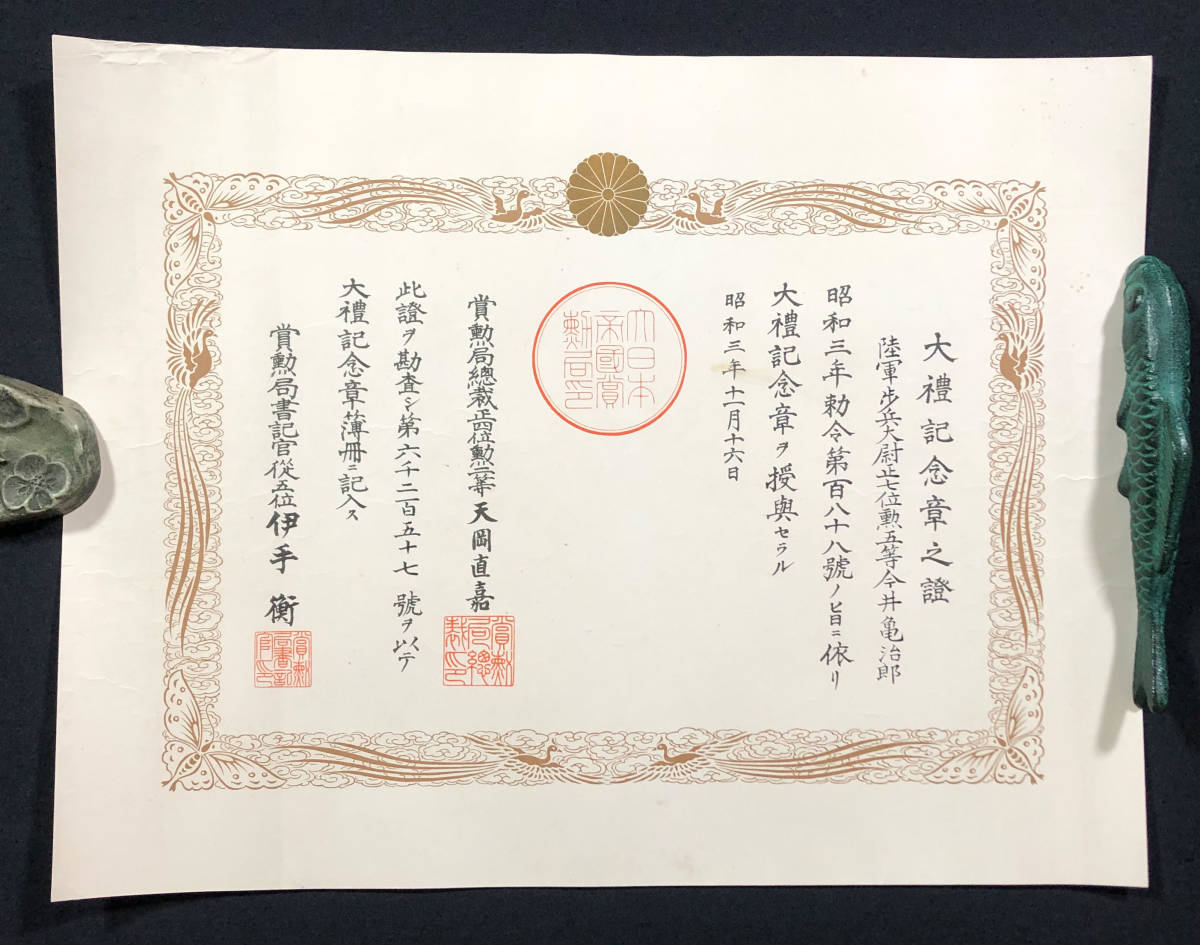 大禮記念章之證
陸軍步兵大尉正七位勲五等今井亀治郎
昭和三年勅令第百八十八號ノ旨ニ依リ
大禮記念章ヲ授與セラル
昭和三年十一月十六日
大日本
帝國賞
勲局印
賞勲局總裁正四位勲二等天岡直嘉
賞勲
局總
裁印
此證ヲ勘査シ第六千二百五十七號ヲ以テ
大禮記念章簿册ニ記入ス
賞勲局書記官從五位伊手衡
賞勲
局書記
官印